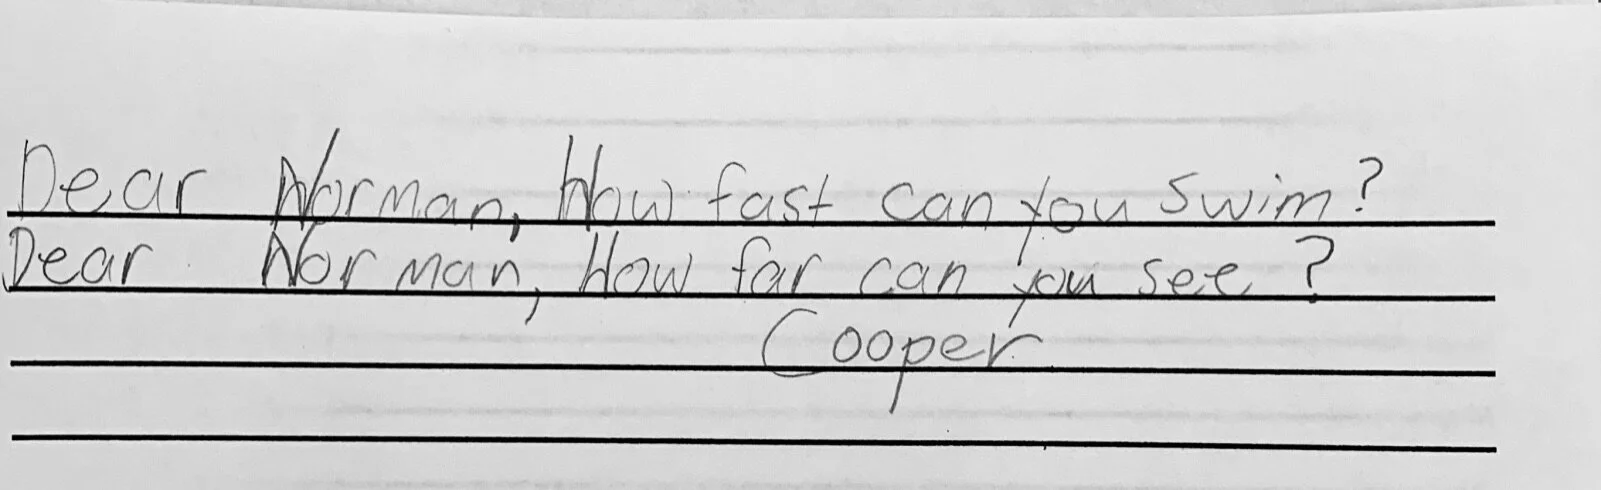 Dear Norman, How fast can you swim?
Dear Norman, How far can you see?
Cooper